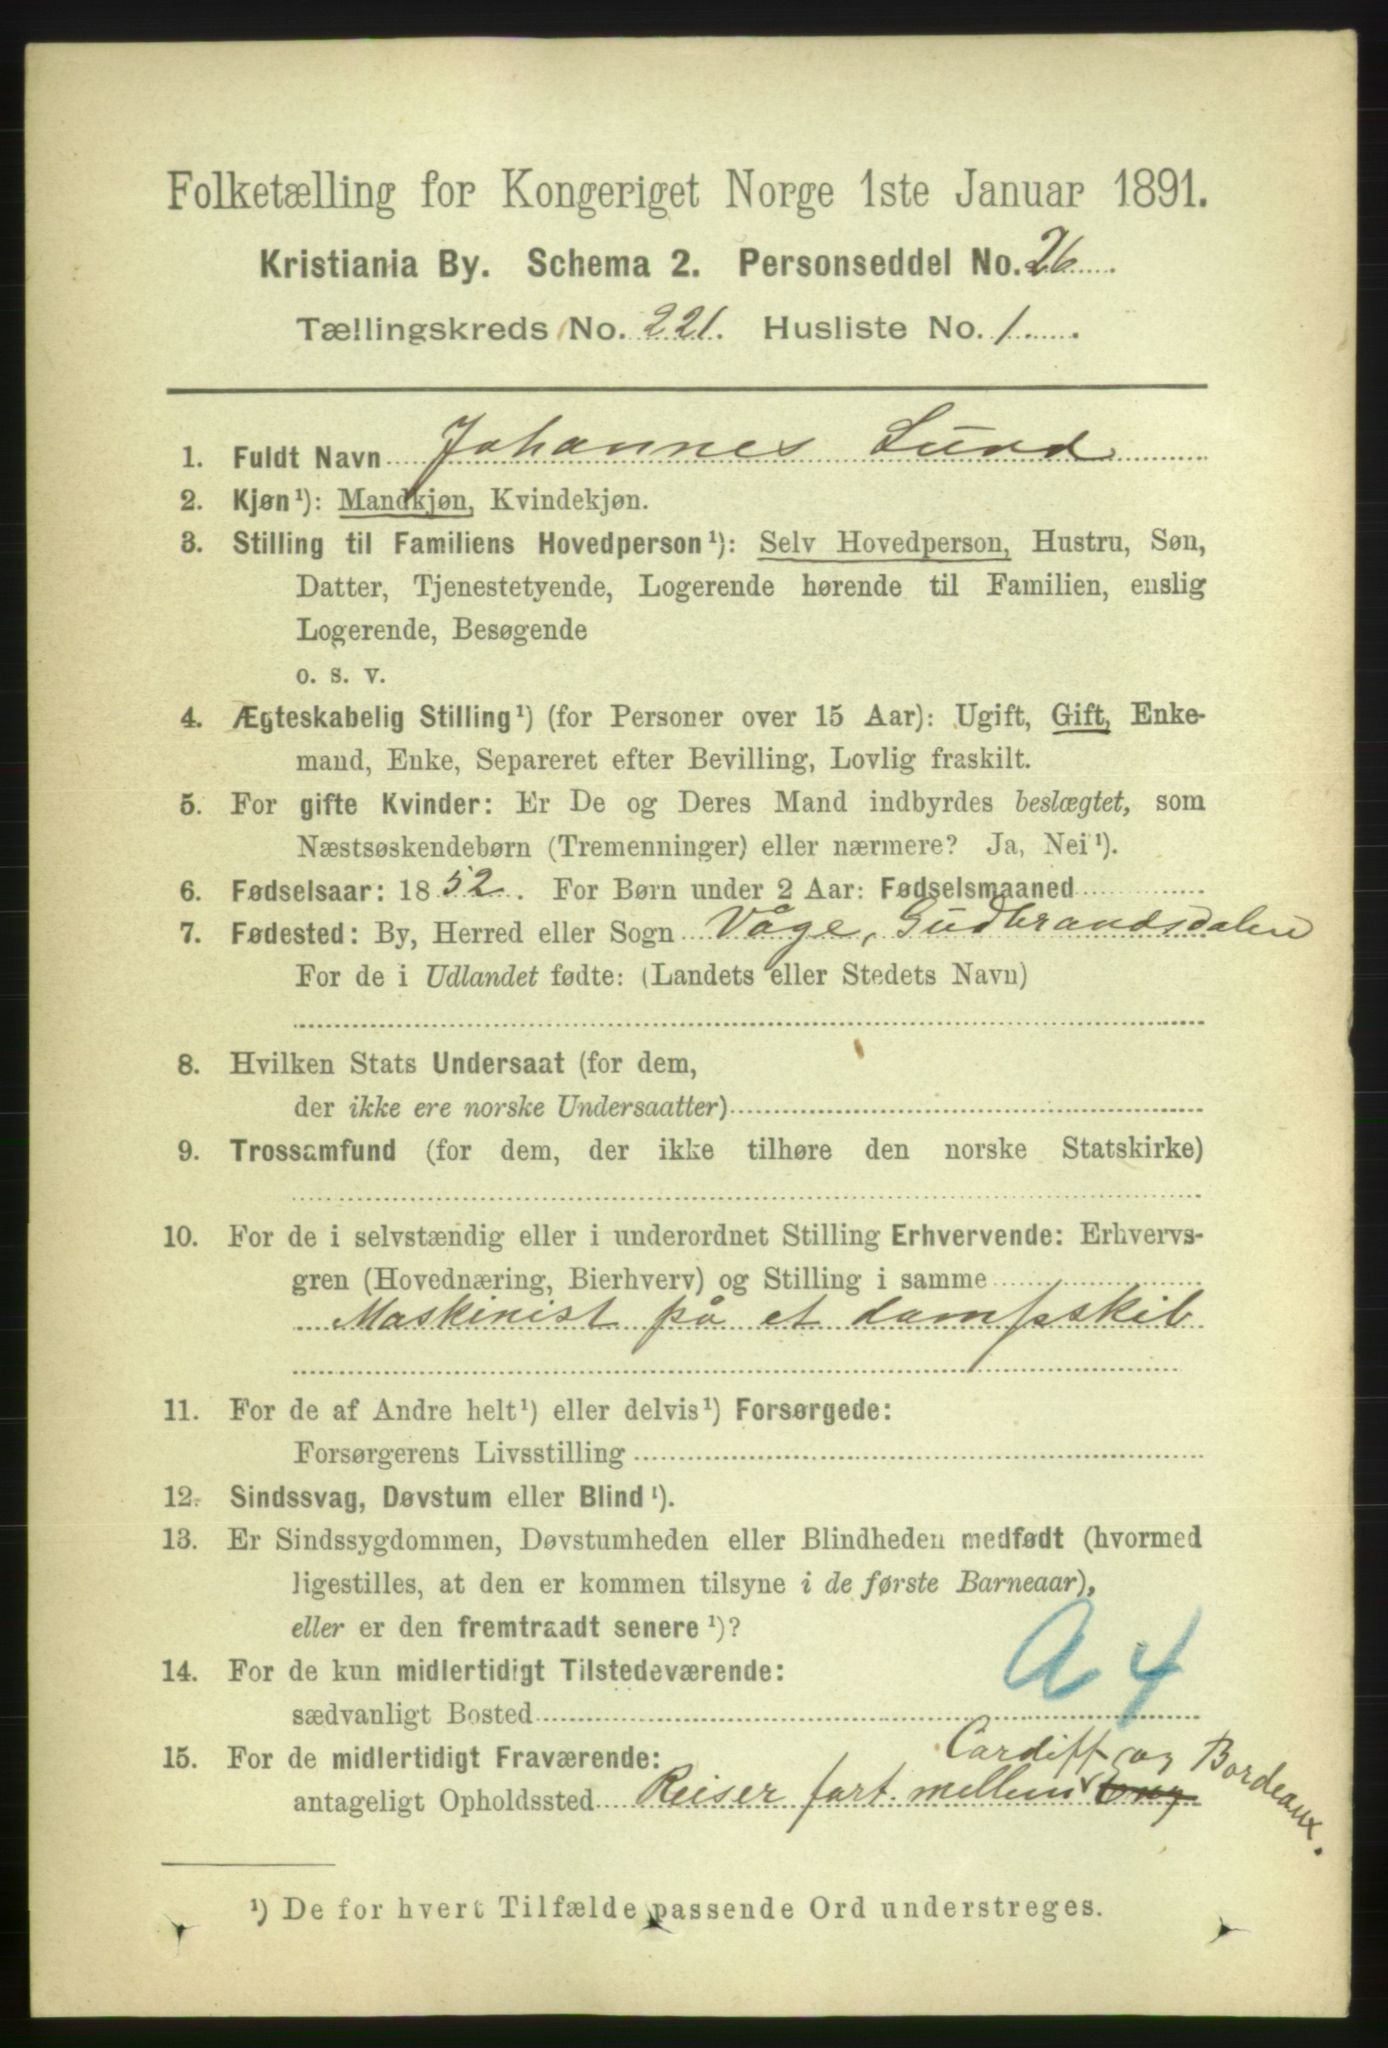 Folketælling for Kongeriget Norge 1ste Januar 1891.
Kristiania By. Schema 2. Personseddel No. 26
Tællingskreds No. 221. Husliste No. 1
1. Fuldt Navn Johannes Lund
2. Kjøn¹): Mandkjøn, Kvindekjøn.
3. Stilling til Familiens Hovedperson¹): Selv Hovedperson, Hustru, Søn,
Datter, Tjenestetyende, Logerende hørende til Familien, enslig
Logerende, Besøgende
o. s. v.
4. Ægteskabelig Stilling¹) (for Personer over 15 Aar): Ugift, Gift, Enke-
mand, Enke, Separeret efter Bevilling, Lovlig fraskilt.
5. For gifte Kvinder: Er De og Deres Mand indbyrdes beslægtet, som
Næstsøskendebørn (Tremenninger) eller nærmere? Ja, Nei¹).
6. Fødselsaar: 1852. For Børn under 2 Aar: Fødselsmaaned
7. Fødested: By, Herred eller Sogn Våge, Gudbrandsdalen
For de i Udlandet fødte: (Landets eller Stedets Navn)
8. Hvilken Stats Undersaat (for dem,
der ikke ere norske Undersaatter)
9. Trossamfund (for dem, der ikke tilhøre den norske Statskirke)
10. For de i selvstændig eller i underordnet Stilling Erhvervende: Erhvervs-
gren (Hovednæring, Bierhverv) og Stilling i samme
Maskinist på et dampskib
11. For de af Andre helt¹) eller delvis¹) Forsørgede:
Forsørgerens Livsstilling
12. Sindssvag, Døvstum eller Blind¹).
13. Er Sindssygdommen, Døvstumheden eller Blindheden medfødt (hvormed
ligestilles, at den er kommen tilsyne i de første Barneaar),
eller er den fremtraadt senere¹)?
A 4
14. For de kun midlertidigt Tilstedeværende:
sædvanligt Bosted
15. For de midlertidigt Fraværende:
Cardiff og Bordeaux.
antageligt Opholdssted Reiser fart. mellem
¹) De for hvert Tilfælde passende Ord understreges.